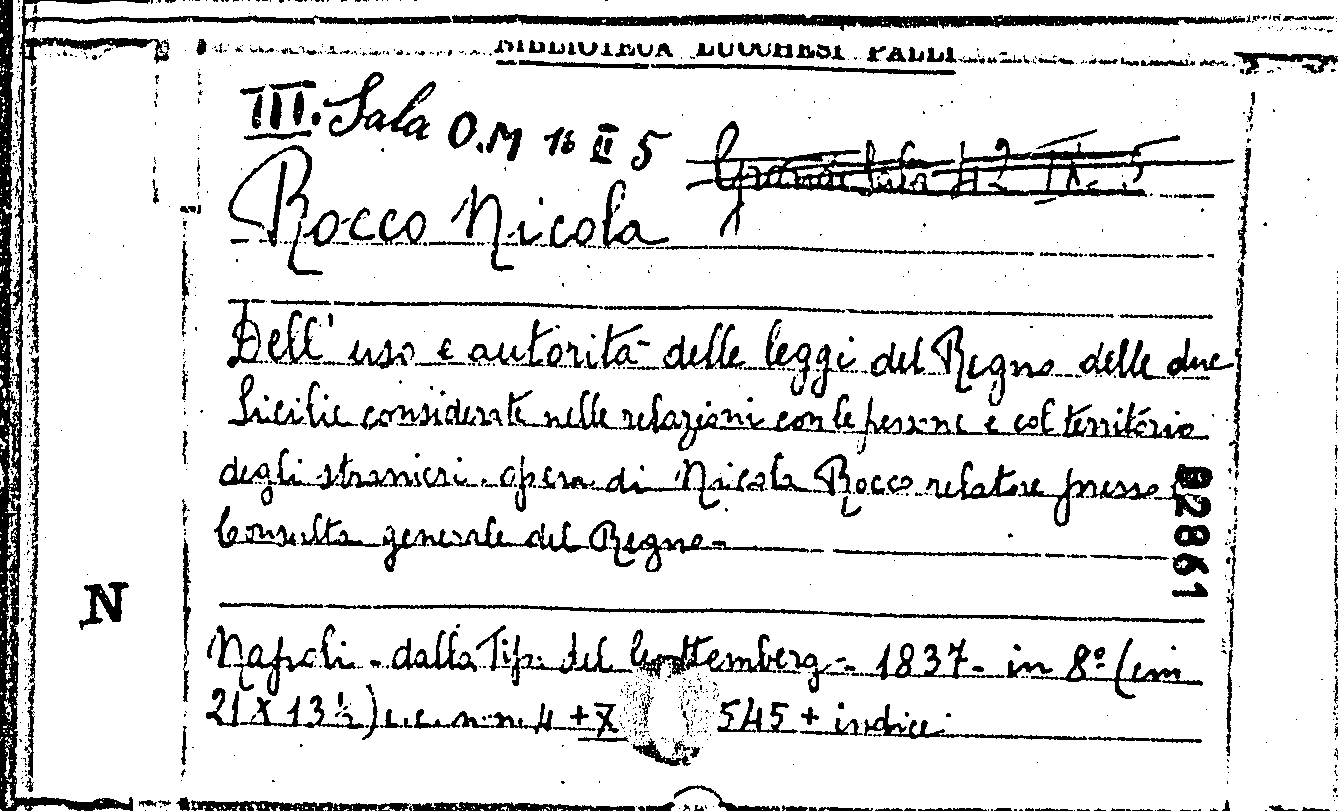 BIBLIOTECA LUCCHESI PALLI
III. Sala O.M 16 II 5 Grande Sala 42 IX. 5
Rocco Nicola
Dell' uso e autorità delle leggi del Regno delle due
Sicilie considerate nelle relazioni con le persone e col territorio
degli stranieri. opera di Nicola Rocco relatore presso
Consulta generale del Regno-
82861
N
Napoli - dalla Tip. del Guttemberg - 1837 - in 8º (cm
21 X 13 ½) c.c. n.n. 4 + 545 + indice